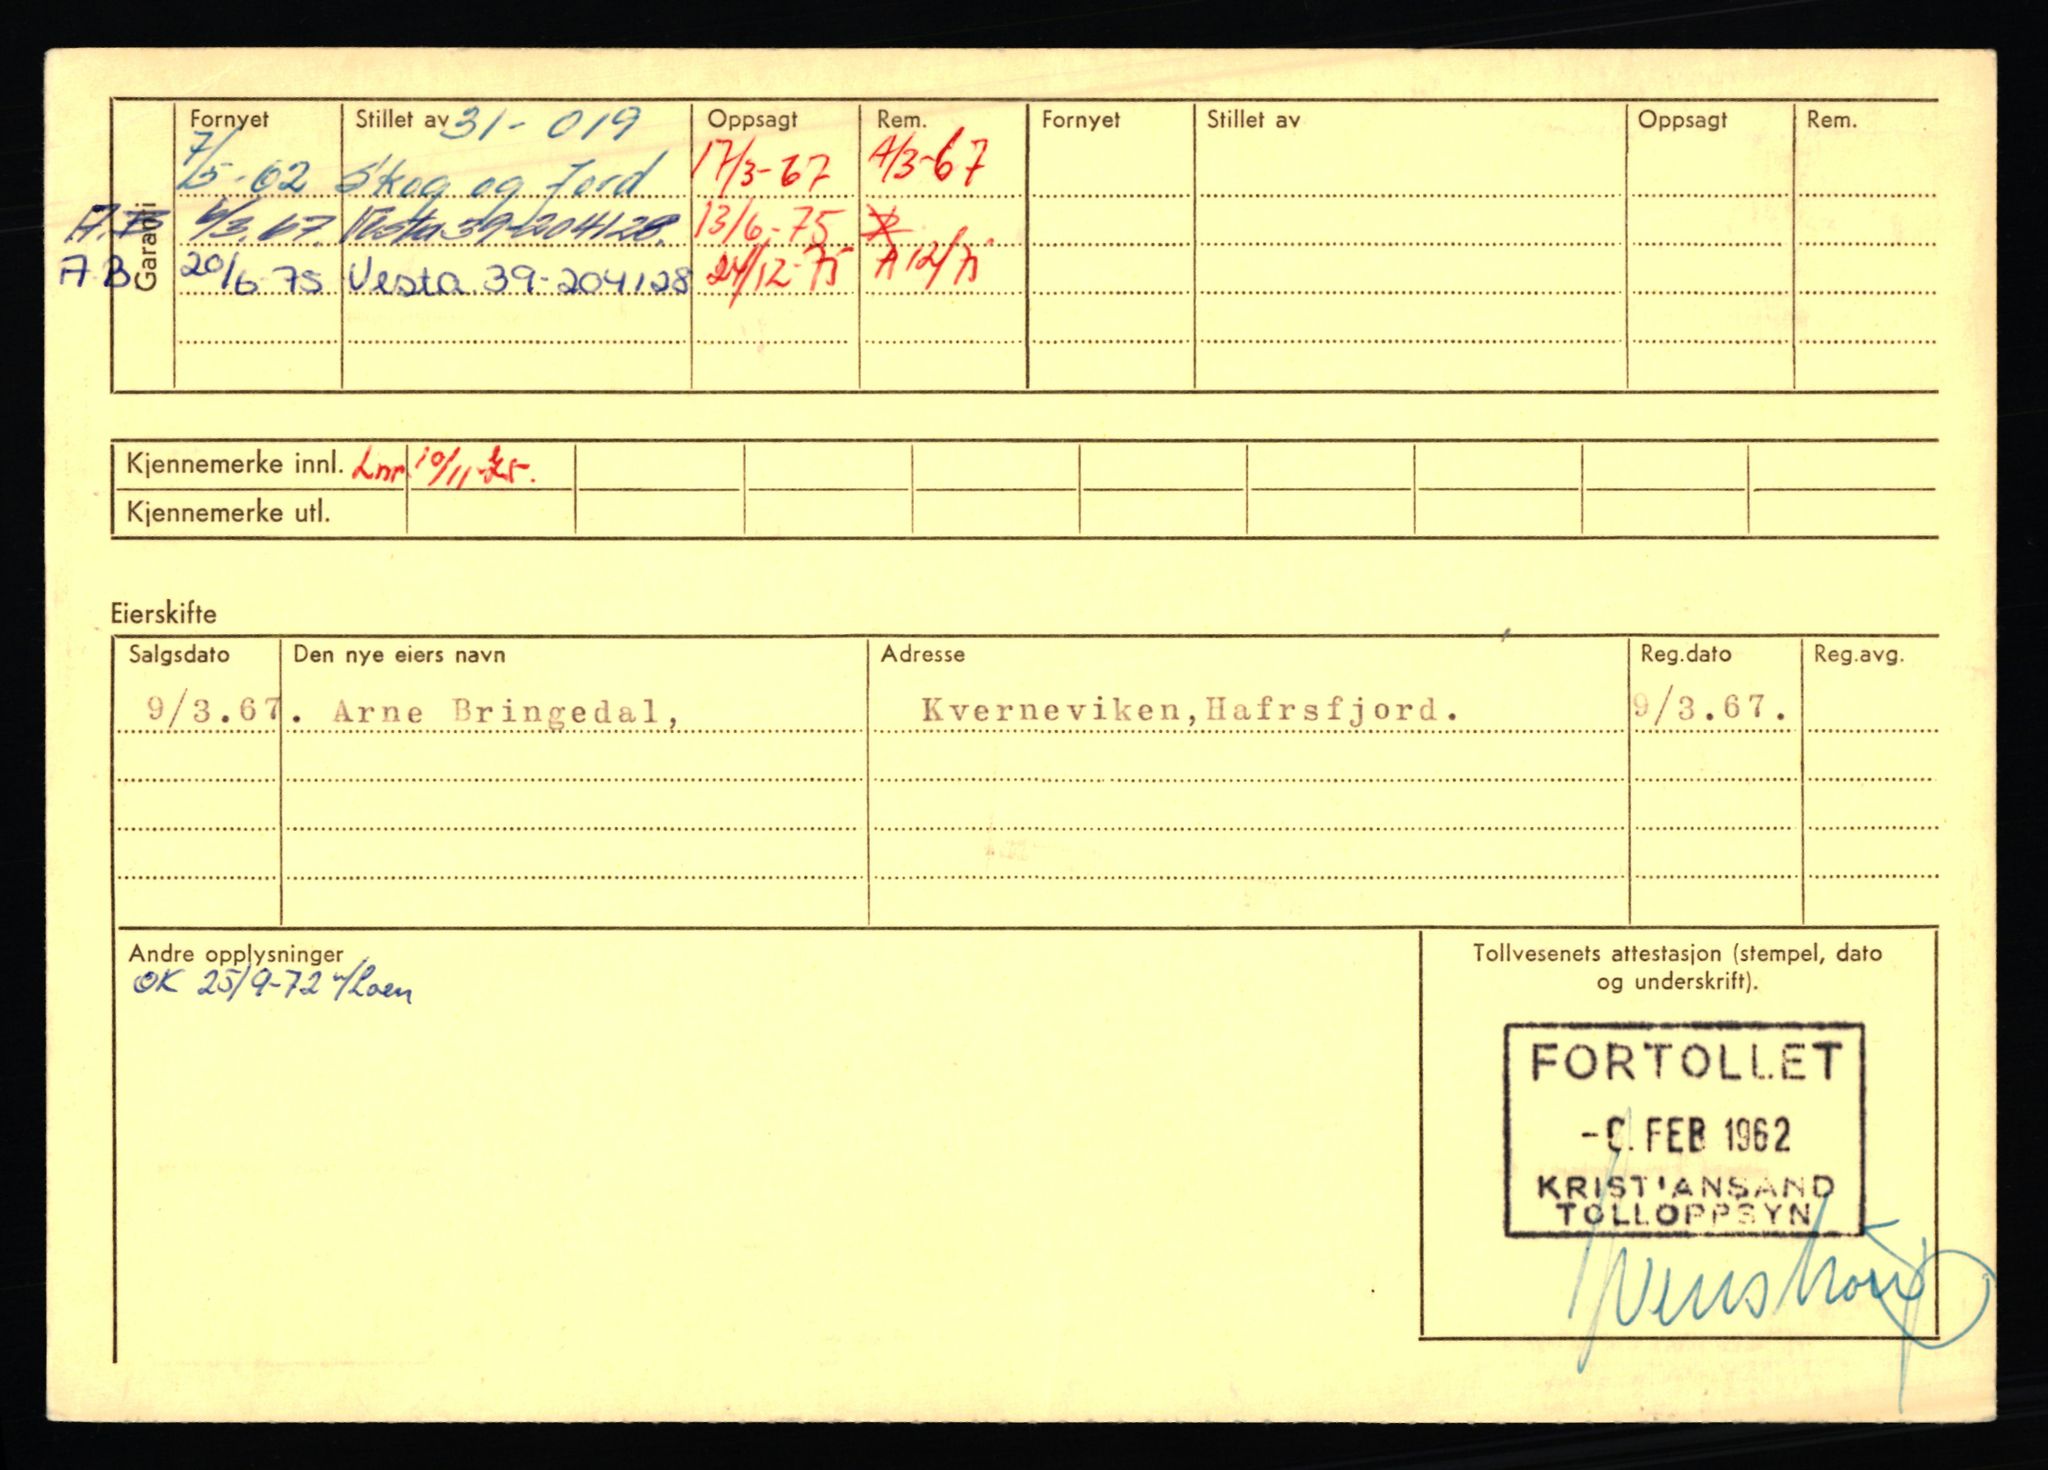 Garanti
Fornyet Stillet av 31-019 Oppsagt Rem. Fornyet Stillet av Oppsagt Rem.
7/5-62 Skog og Jord 17/3-67 A/3-67
/3.67. Vesta 39-204128. 13/6-75
A.B 20/6-75 Vesta 39-204128 24/12-75 A 12/75
Kjennemerke innl. Lnr. 10/11-75.
Kjennemerke utl.
Eierskifte
Salgsdato Den nye eiers navn Adresse Reg.dato Reg.avg.
9/3.67. Arne Bringedal, Kverneviken,Hafrsfjord. 9/3.67.
Andre opplysninger
OK 25/9-72
Tollvesenets attestasjon (stempel, dato
og underskrift).
FORTOLLET
FEB 1962
KRISTIANSAND
TOLLOPPSYN